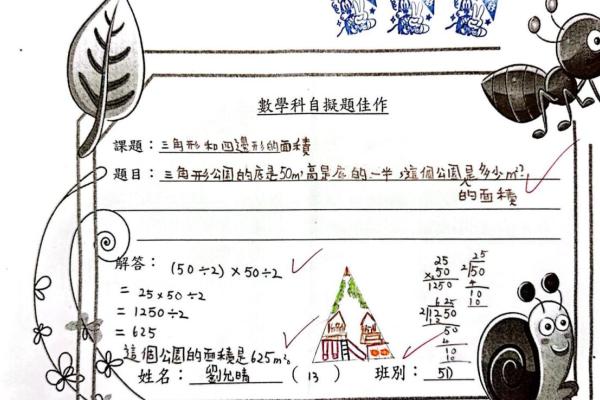 數學科自擬題佳作
課題：三角形和四邊形的面積
題目：三角形公園的底是50m，高是底的一半，這個公園的面積是多少m²？
解答：(50÷2)×50÷2
=25×50÷2
=1250÷2
=625
這個公園的面積是625m²。
25
×50
1250
25
2)50
4
10
10
625
2)1250
12
50
4
10
10
姓名：劉允晴 (13) 班別：5D